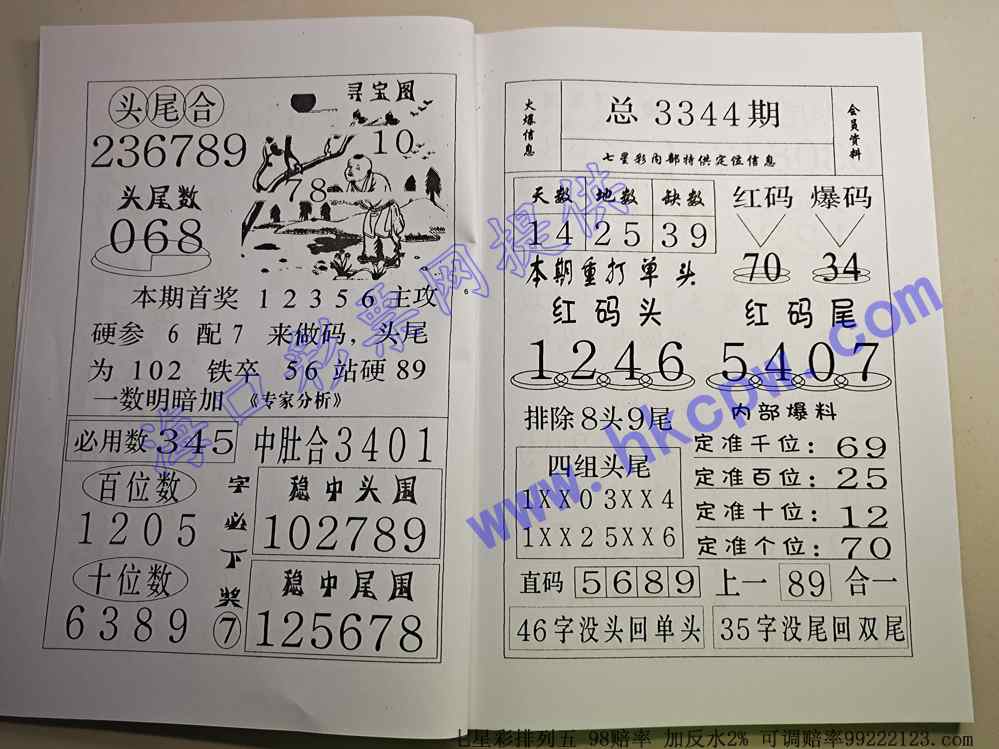 头尾合
236789
头尾数
068
寻宝图
10
78
本期首奖 12356 主攻
硬参 6 配 7 来做码，头尾
为 102 铁卒 56 站硬 89
一数明暗加 《专家分析》
必用数 345
中肚合 3401
百位数
1205
十位数
6389
字必下奖⑦
稳中头围
102789
稳中尾围
125678
6
火爆信息
总 3344 期
七星彩内部特供定位信息
会员资料
天数 地数 缺数
14 25 39
红码 爆码
70 34
本期重打单头
红码头
1246
红码尾
5407
排除8头9尾
四组头尾
1XX0 3XX4
1XX2 5XX6
内部爆料
定准千位：69
定准百位：25
定准十位：12
定准个位：70
直码 5689 上一 89 合一
46字没头回单头
35字没尾回双尾
海口彩票网提供
www.hkcpw.com
七星彩排列五 98赔率 加反水2% 可调赔率99222123.com